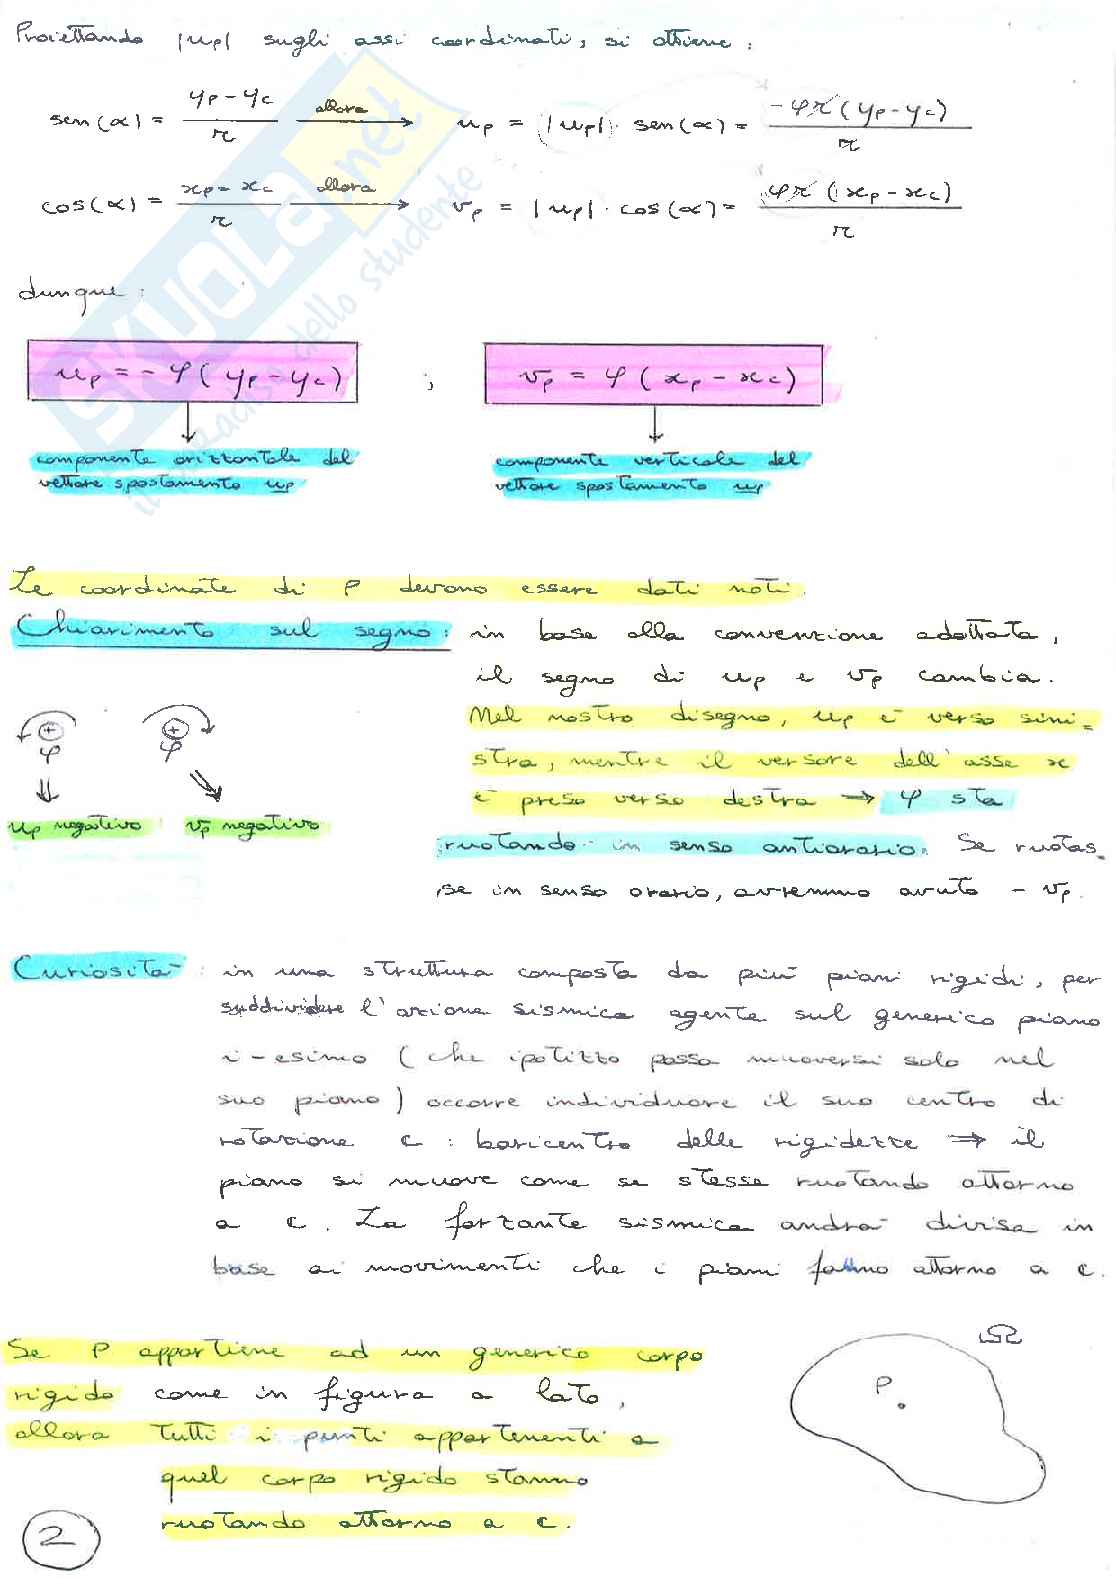 Proiettando |up| sugli assi coordinati, si ottiene:
sen(α) = (yp - yc)/r allora → up = |up| · sen(α) = -φr(yp - yc)/r
cos(α) = (xp - xc)/r allora → vp = |up| · cos(α) = φr(xp - xc)/r
dunque:
up = - φ(yp - yc) ; vp = φ(xp - xc)
componente orizzontale del
vettore spostamento up
componente verticale del
vettore spostamento up
Le coordinate di P devono essere dati noti.
Chiarimento sul segno: in base alla convenzione adottata,
il segno di up e vp cambia.
Nel nostro disegno, up è verso sini-
stra, mentre il versore dell'asse x
è preso verso destra → φ sta
ruotando in senso antiorario. Se ruotas-
se in senso orario, avremmo avuto - vp.
+ φ
+ φ
up negativo
vp negativo
Curiosità: in una struttura composta da più piani rigidi, per
suddividere l'azione sismica agente sul generico piano
i-esimo (che ipotizzo possa muoversi solo nel
suo piano) occorre individuare il suo centro di
rotazione C: baricentro delle rigidezze ⇒ il
piano si muove come se stesse ruotando attorno
a C. La forzante sismica andrà divisa in
base ai movimenti che i piani fanno attorno a C.
Se P appartiene ad un generico corpo
rigido come in figura a lato,
allora tutti i punti appartenenti a
quel corpo rigido stanno
ruotando attorno a C.
Ω
P
2
SKUOLA.net
il paradiso dello studente